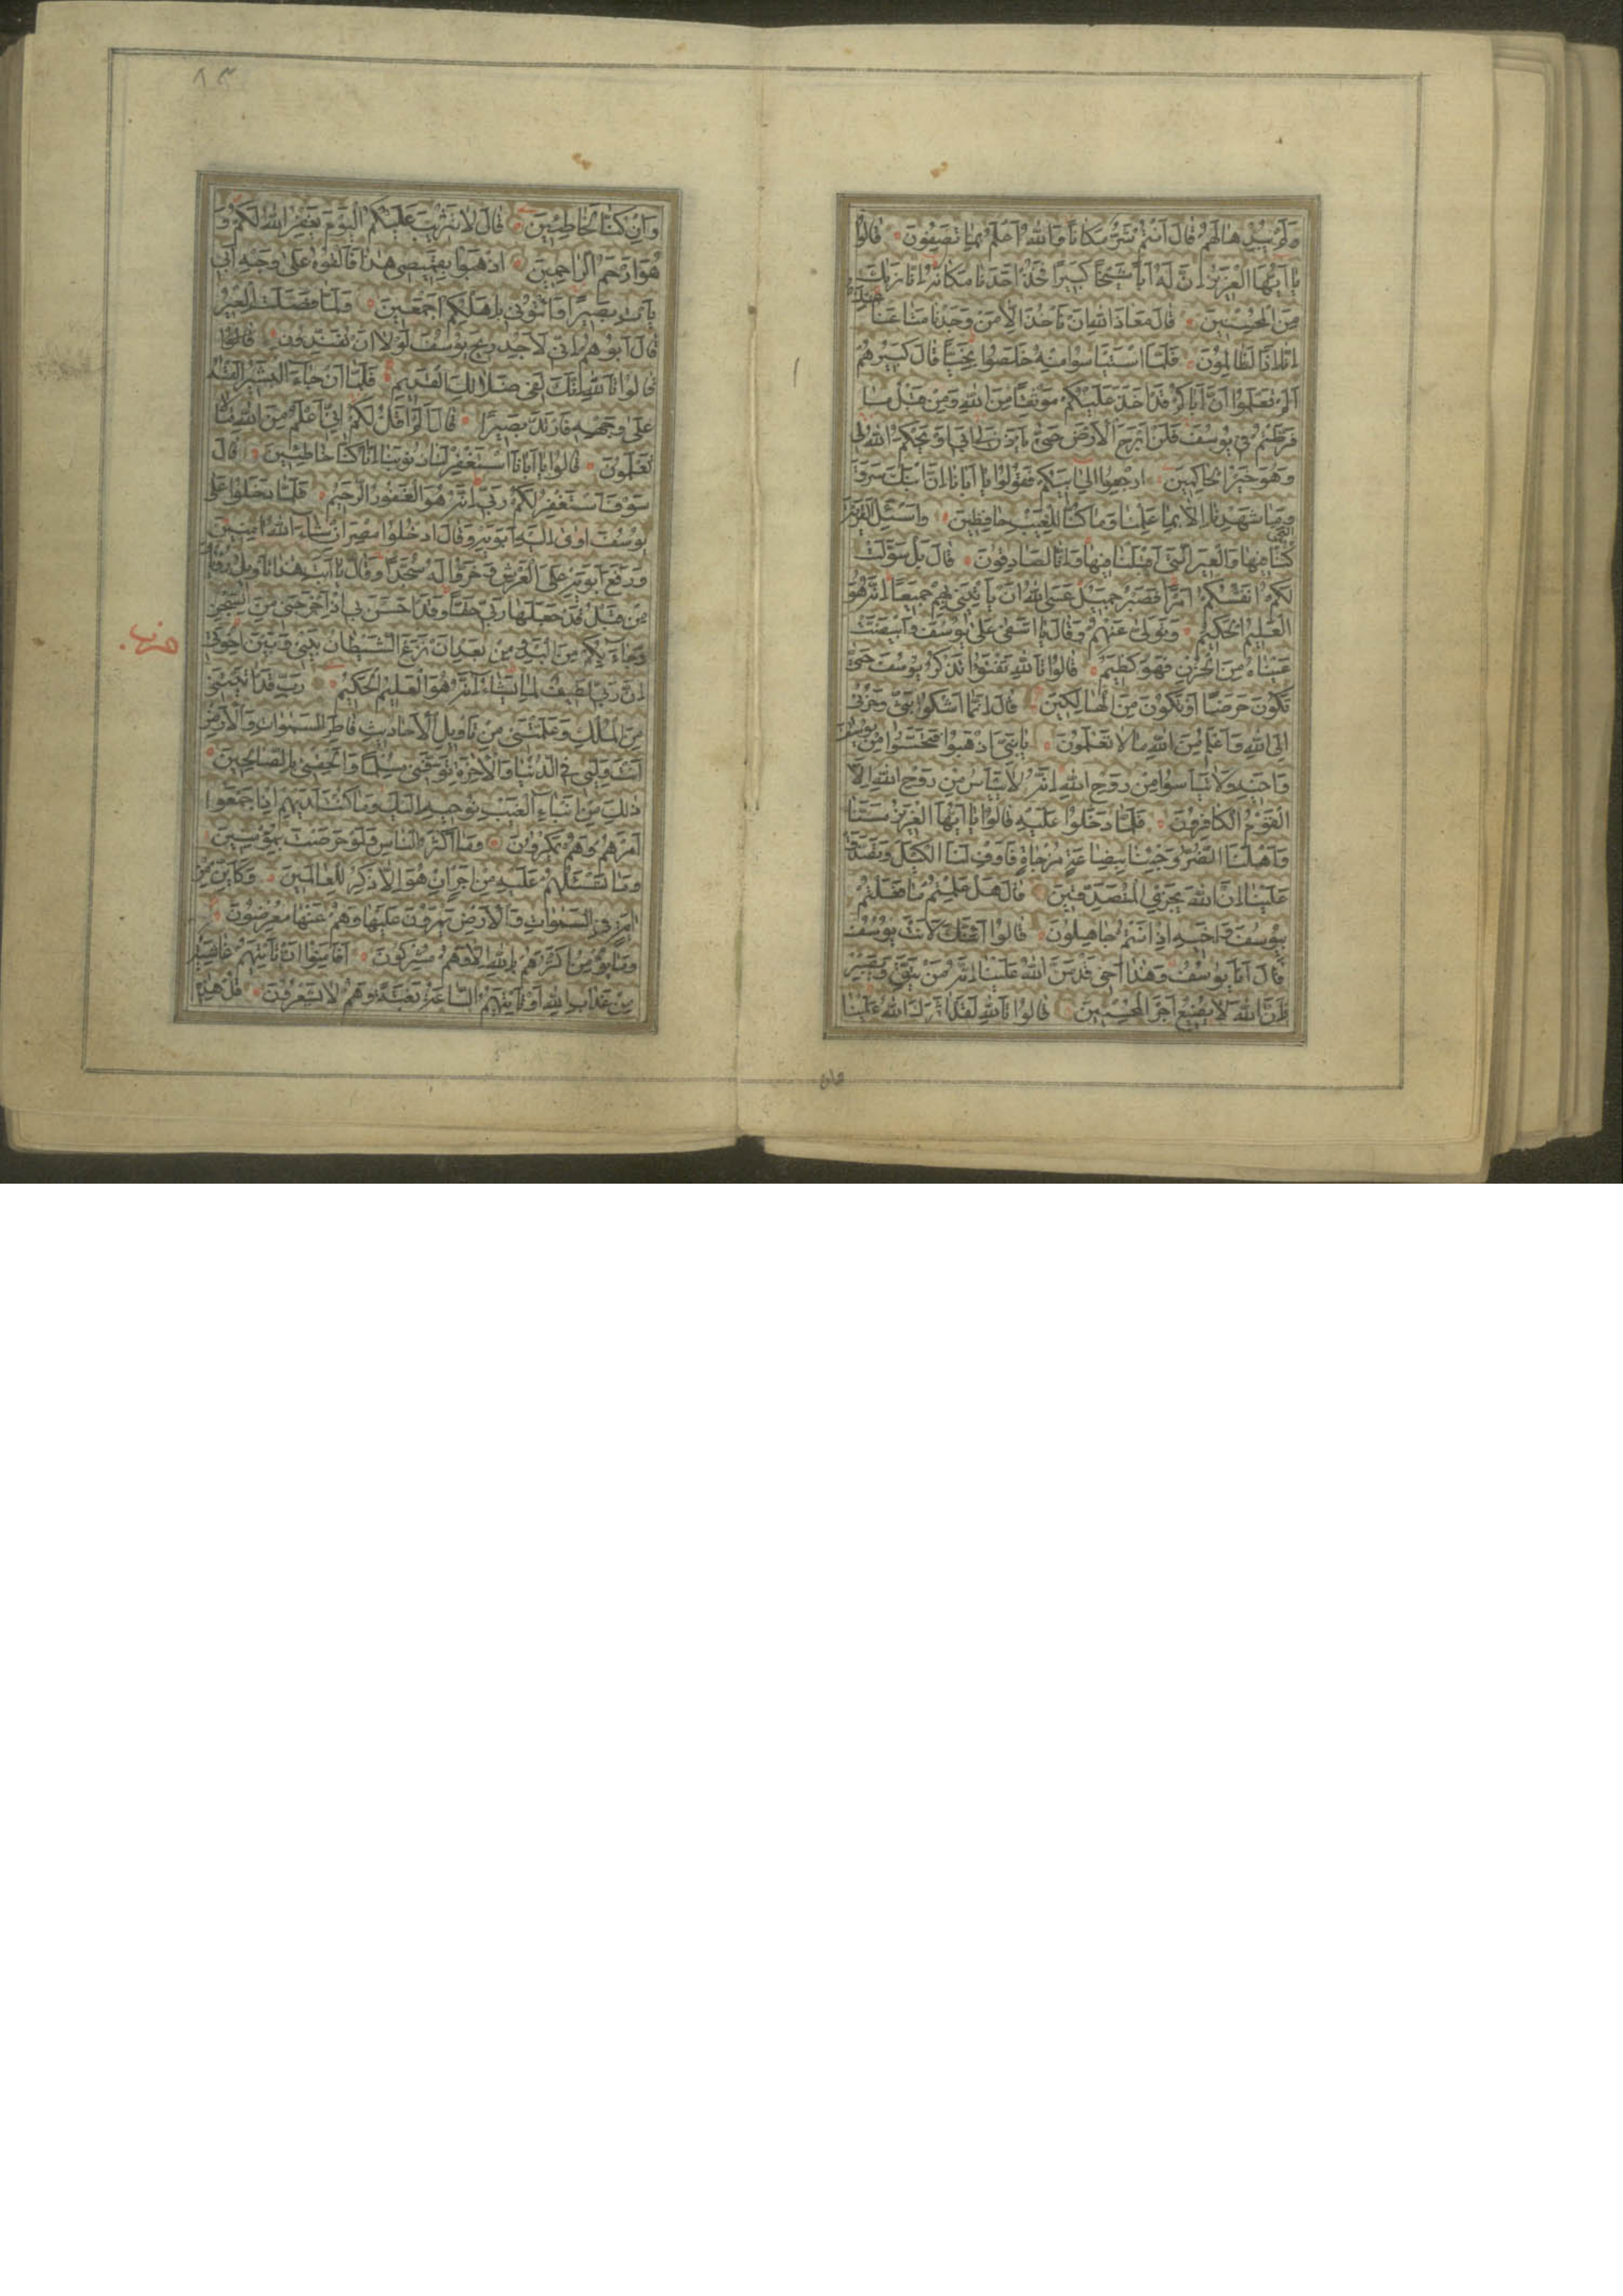 وَلَمْ يُبْدِهَا لَهُمْ قَالَ أَنْتُمْ شَرٌّ مَكَانًا وَاللّٰهُ أَعْلَمُ بِمَا تَصِفُونَ قَالُوا
يَا أَيُّهَا الْعَزِيزُ إِنَّ لَهُ أَبًا شَيْخًا كَبِيرًا فَخُذْ أَحَدَنَا مَكَانَهُ إِنَّا نَرَاكَ
مِنَ الْمُحْسِنِينَ قَالَ مَعَاذَ اللّٰهِ أَنْ نَأْخُذَ إِلَّا مَنْ وَجَدْنَا مَتَاعَنَا عِنْدَهُ
إِنَّا إِذًا لَظَالِمُونَ فَلَمَّا اسْتَيْأَسُوا مِنْهُ خَلَصُوا نَجِيًّا قَالَ كَبِيرُهُمْ
أَلَمْ تَعْلَمُوا أَنَّ أَبَاكُمْ قَدْ أَخَذَ عَلَيْكُمْ مَوْثِقًا مِنَ اللّٰهِ وَمِنْ قَبْلُ مَا
فَرَّطْتُمْ فِي يُوسُفَ فَلَنْ أَبْرَحَ الْأَرْضَ حَتَّى يَأْذَنَ لِي أَبِي أَوْ يَحْكُمَ اللّٰهُ لِي
وَهُوَ خَيْرُ الْحَاكِمِينَ ارْجِعُوا إِلَى أَبِيكُمْ فَقُولُوا يَا أَبَانَا إِنَّ ابْنَكَ سَرَقَ
وَمَا شَهِدْنَا إِلَّا بِمَا عَلِمْنَا وَمَا كُنَّا لِلْغَيْبِ حَافِظِينَ وَاسْئَلِ الْقَرْيَةَ الَّتِي
كُنَّا فِيهَا وَالْعِيرَ الَّتِي أَقْبَلْنَا فِيهَا وَإِنَّا لَصَادِقُونَ قَالَ بَلْ سَوَّلَتْ
لَكُمْ أَنْفُسُكُمْ أَمْرًا فَصَبْرٌ جَمِيلٌ عَسَى اللّٰهُ أَنْ يَأْتِيَنِي بِهِمْ جَمِيعًا إِنَّهُ هُوَ
الْعَلِيمُ الْحَكِيمُ وَتَوَلَّى عَنْهُمْ وَقَالَ يَا أَسَفَى عَلَى يُوسُفَ وَابْيَضَّتْ
عَيْنَاهُ مِنَ الْحُزْنِ فَهُوَ كَظِيمٌ قَالُوا تَاللّٰهِ تَفْتَؤُا تَذْكُرُ يُوسُفَ حَتَّى
تَكُونَ حَرَضًا أَوْ تَكُونَ مِنَ الْهَالِكِينَ قَالَ إِنَّمَا أَشْكُوا بَثِّي وَحُزْنِي
إِلَى اللّٰهِ وَأَعْلَمُ مِنَ اللّٰهِ مَا لَا تَعْلَمُونَ يَا بَنِيَّ اذْهَبُوا فَتَحَسَّسُوا مِنْ يُوسُفَ
وَأَخِيهِ وَلَا تَيْأَسُوا مِنْ رَوْحِ اللّٰهِ إِنَّهُ لَا يَيْأَسُ مِنْ رَوْحِ اللّٰهِ إِلَّا
الْقَوْمُ الْكَافِرُونَ فَلَمَّا دَخَلُوا عَلَيْهِ قَالُوا يَا أَيُّهَا الْعَزِيزُ مَسَّنَا
وَأَهْلَنَا الضُّرُّ وَجِئْنَا بِبِضَاعَةٍ مُزْجَاةٍ فَأَوْفِ لَنَا الْكَيْلَ وَتَصَدَّقْ
عَلَيْنَا إِنَّ اللّٰهَ يَجْزِي الْمُتَصَدِّقِينَ قَالَ هَلْ عَلِمْتُمْ مَا فَعَلْتُمْ
بِيُوسُفَ وَأَخِيهِ إِذْ أَنْتُمْ جَاهِلُونَ قَالُوا أَئِنَّكَ لَأَنْتَ يُوسُفُ
قَالَ أَنَا يُوسُفُ وَهٰذَا أَخِي قَدْ مَنَّ اللّٰهُ عَلَيْنَا إِنَّهُ مَنْ يَتَّقِ وَيَصْبِرْ
فَإِنَّ اللّٰهَ لَا يُضِيعُ أَجْرَ الْمُحْسِنِينَ قَالُوا تَاللّٰهِ لَقَدْ آثَرَكَ اللّٰهُ عَلَيْنَا
وان
٨٣
وَإِنْ كُنَّا لَخَاطِئِينَ قَالَ لَا تَثْرِيبَ عَلَيْكُمُ الْيَوْمَ يَغْفِرُ اللّٰهُ لَكُمْ وَ
هُوَ أَرْحَمُ الرَّاحِمِينَ اذْهَبُوا بِقَمِيصِي هٰذَا فَأَلْقُوهُ عَلَى وَجْهِ أَبِي
يَأْتِ بَصِيرًا وَأْتُونِي بِأَهْلِكُمْ أَجْمَعِينَ وَلَمَّا فَصَلَتِ الْعِيرُ
قَالَ أَبُوهُمْ إِنِّي لَأَجِدُ رِيحَ يُوسُفَ لَوْلَا أَنْ تُفَنِّدُونِ
قَالُوا تَاللّٰهِ إِنَّكَ لَفِي ضَلَالِكَ الْقَدِيمِ فَلَمَّا أَنْ جَاءَ الْبَشِيرُ أَلْقَاهُ
عَلَى وَجْهِهِ فَارْتَدَّ بَصِيرًا قَالَ أَلَمْ أَقُلْ لَكُمْ إِنِّي أَعْلَمُ مِنَ اللّٰهِ مَا لَا
تَعْلَمُونَ قَالُوا يَا أَبَانَا اسْتَغْفِرْ لَنَا ذُنُوبَنَا إِنَّا كُنَّا خَاطِئِينَ قَالَ
سَوْفَ أَسْتَغْفِرُ لَكُمْ رَبِّي إِنَّهُ هُوَ الْغَفُورُ الرَّحِيمُ فَلَمَّا دَخَلُوا عَلَى
يُوسُفَ آوَى إِلَيْهِ أَبَوَيْهِ وَقَالَ ادْخُلُوا مِصْرَ إِنْ شَاءَ اللّٰهُ آمِنِينَ
وَرَفَعَ أَبَوَيْهِ عَلَى الْعَرْشِ وَخَرُّوا لَهُ سُجَّدًا وَقَالَ يَا أَبَتِ هٰذَا تَأْوِيلُ رُؤْيَايَ
مِنْ قَبْلُ قَدْ جَعَلَهَا رَبِّي حَقًّا وَقَدْ أَحْسَنَ بِي إِذْ أَخْرَجَنِي مِنَ السِّجْنِ
وَجَاءَ بِكُمْ مِنَ الْبَدْوِ مِنْ بَعْدِ أَنْ نَزَغَ الشَّيْطَانُ بَيْنِي وَبَيْنَ إِخْوَتِي
حزب
إِنَّ رَبِّي لَطِيفٌ لِمَا يَشَاءُ إِنَّهُ هُوَ الْعَلِيمُ الْحَكِيمُ رَبِّ قَدْ آتَيْتَنِي
مِنَ الْمُلْكِ وَعَلَّمْتَنِي مِنْ تَأْوِيلِ الْأَحَادِيثِ فَاطِرَ السَّمٰوَاتِ وَالْأَرْضِ
أَنْتَ وَلِيِّي فِي الدُّنْيَا وَالْآخِرَةِ تَوَفَّنِي مُسْلِمًا وَأَلْحِقْنِي بِالصَّالِحِينَ
ذٰلِكَ مِنْ أَنْبَاءِ الْغَيْبِ نُوحِيهِ إِلَيْكَ وَمَا كُنْتَ لَدَيْهِمْ إِذْ أَجْمَعُوا
أَمْرَهُمْ وَهُمْ يَمْكُرُونَ وَمَا أَكْثَرُ النَّاسِ وَلَوْ حَرَصْتَ بِمُؤْمِنِينَ
وَمَا تَسْئَلُهُمْ عَلَيْهِ مِنْ أَجْرٍ إِنْ هُوَ إِلَّا ذِكْرٌ لِلْعَالَمِينَ وَكَأَيِّنْ مِنْ
آيَةٍ فِي السَّمٰوَاتِ وَالْأَرْضِ يَمُرُّونَ عَلَيْهَا وَهُمْ عَنْهَا مُعْرِضُونَ
وَمَا يُؤْمِنُ أَكْثَرُهُمْ بِاللّٰهِ إِلَّا وَهُمْ مُشْرِكُونَ أَفَأَمِنُوا أَنْ تَأْتِيَهُمْ غَاشِيَةٌ
مِنْ عَذَابِ اللّٰهِ أَوْ تَأْتِيَهُمُ السَّاعَةُ بَغْتَةً وَهُمْ لَا يَشْعُرُونَ قُلْ هٰذِهِ